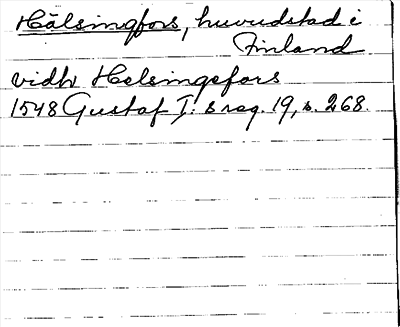 Hälsingfors, huvudstad i
Finland
vidh Helsingefors
1548 Gustaf I: s reg. 19, s. 268.